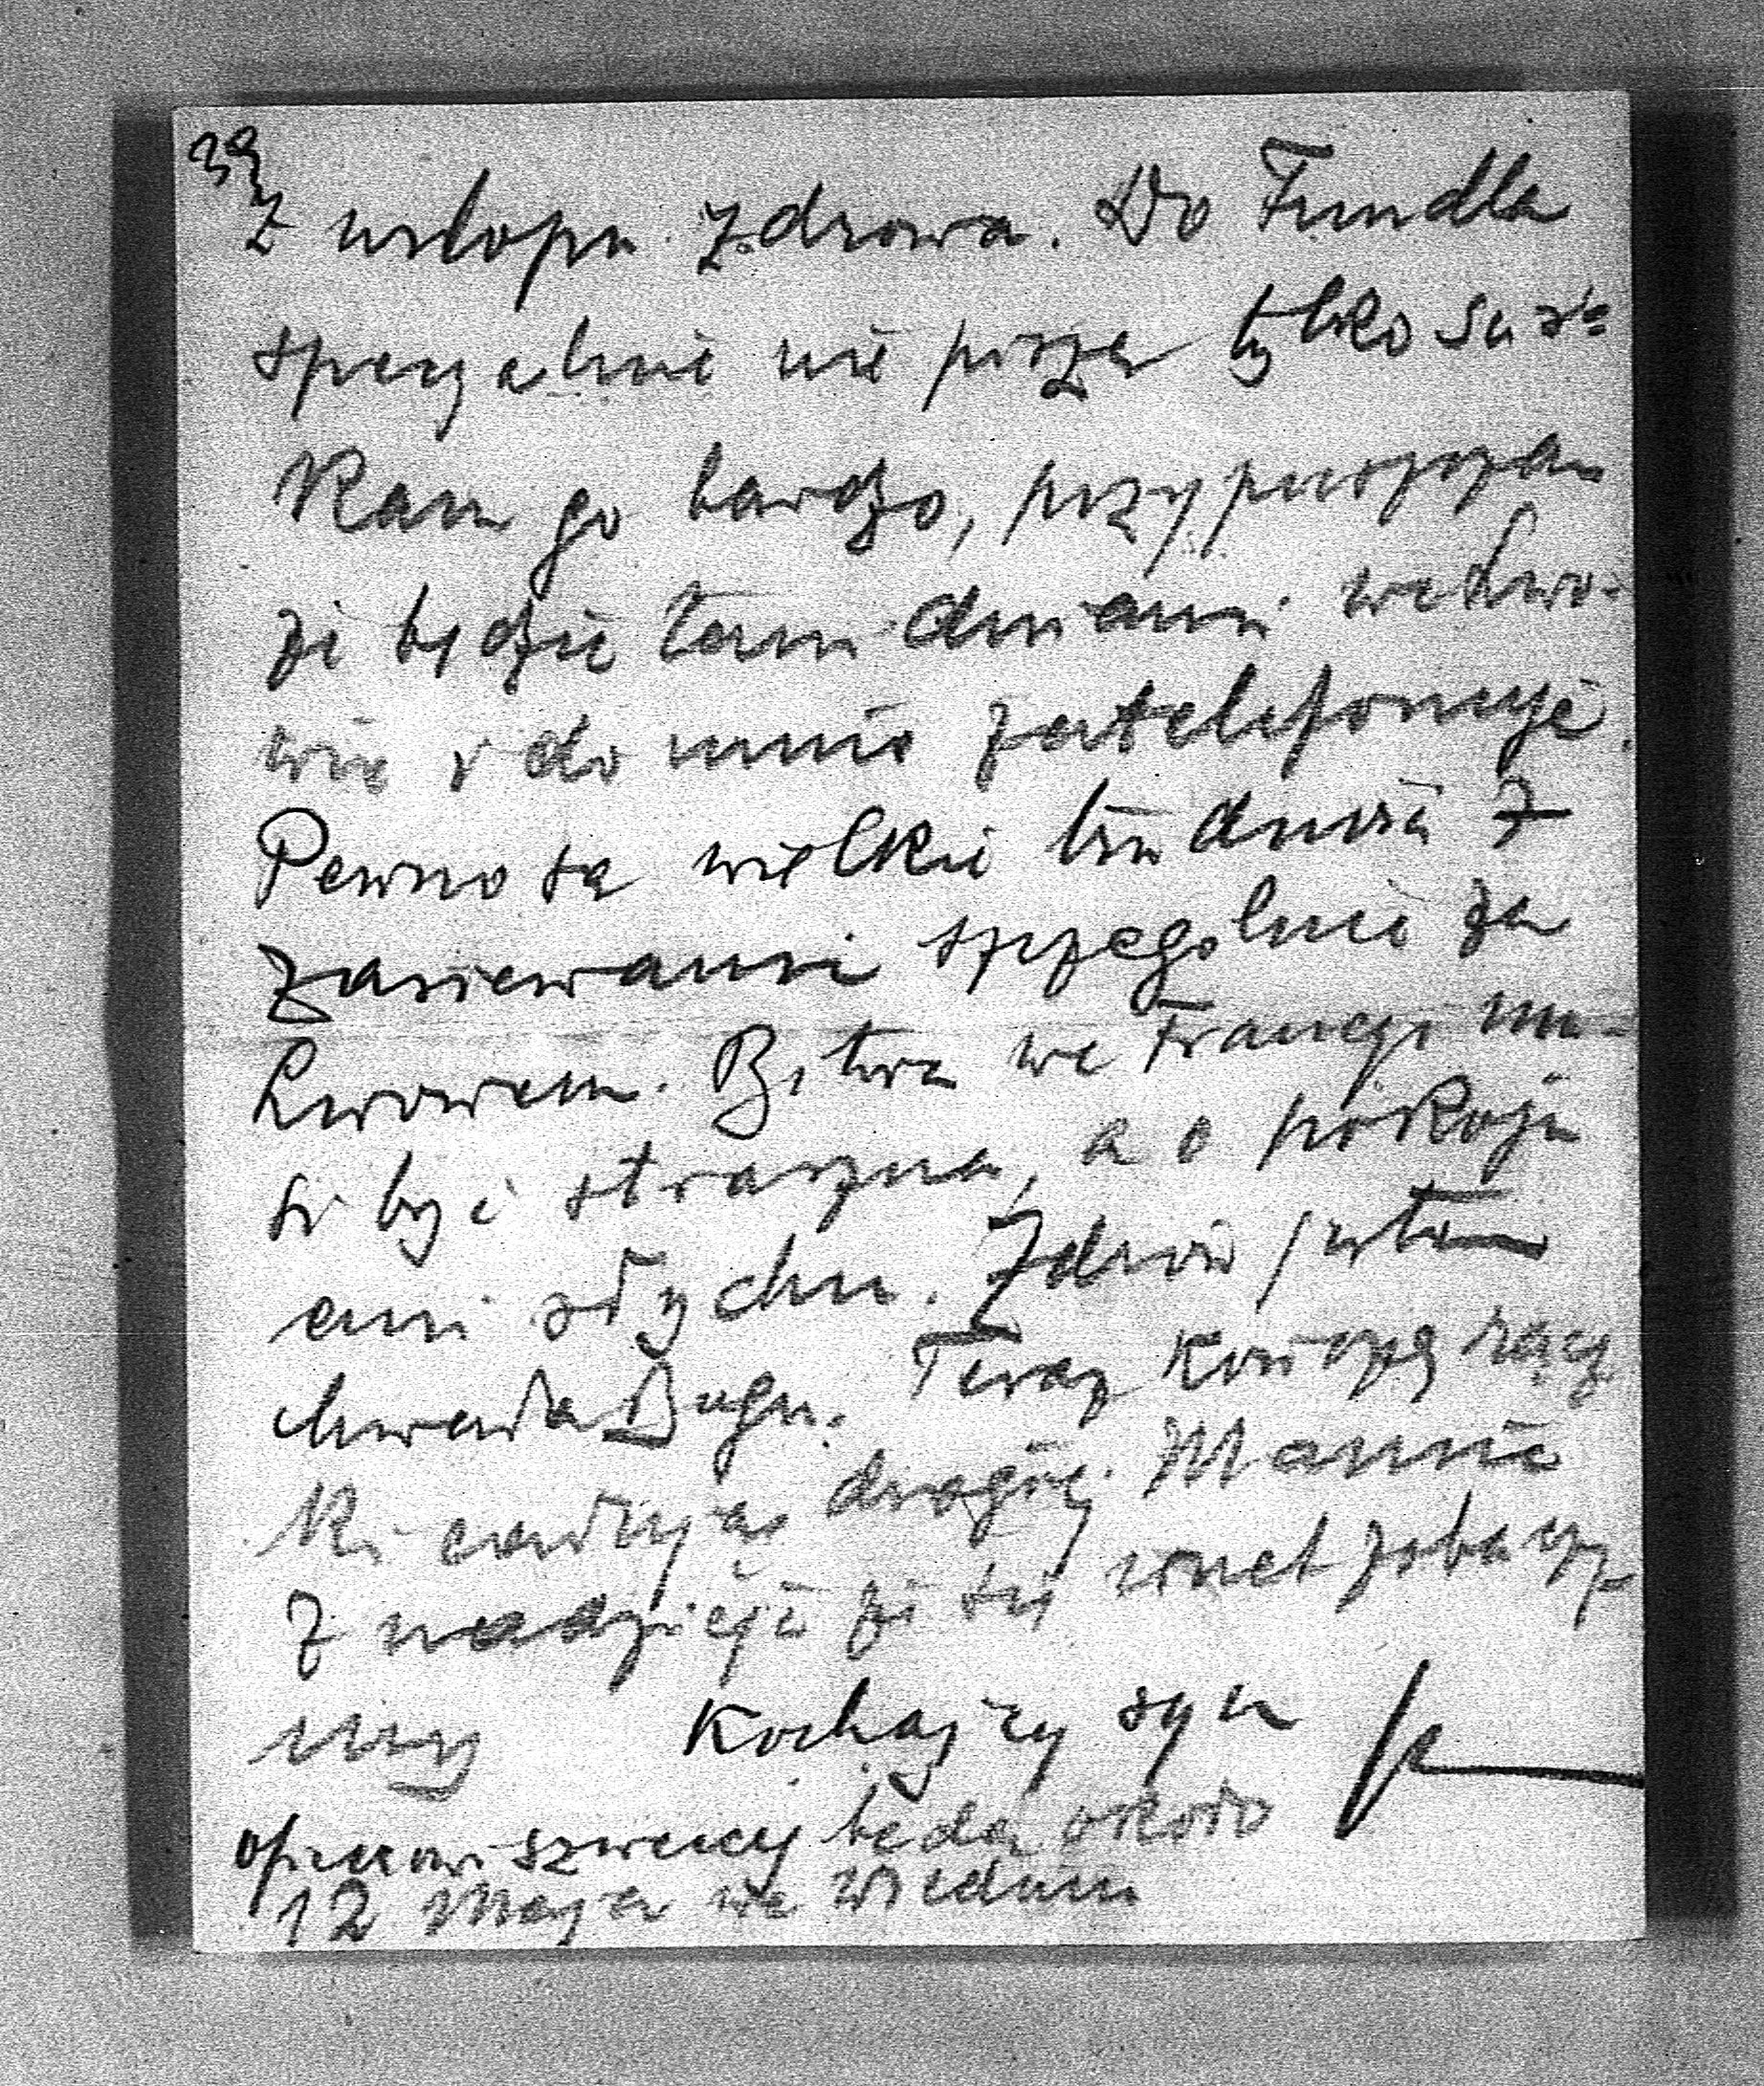 39
z urlopu zdrowa. Do Fundla
specyalnie nie piszę tylko ści-
skam go bardzo, przypuszczam
że będzie tam dniami we Lwo-
wie i do mnie zatelefonuje.
Pewno są wielkie trudności z
zasiewami szczególnie za
Lwowem. Bitwa we Francyi mu-
si być straszna, a o pokoju
ani słychu. Zdrów jestem
chwała Bogu. Teraz kończę rącz
ki całując drogiej Mamie
z nadzieją że się wnet zobaczy-
my Kochający syn
oficerowie szwedzcy będą około
12 Maja we Wiedniu